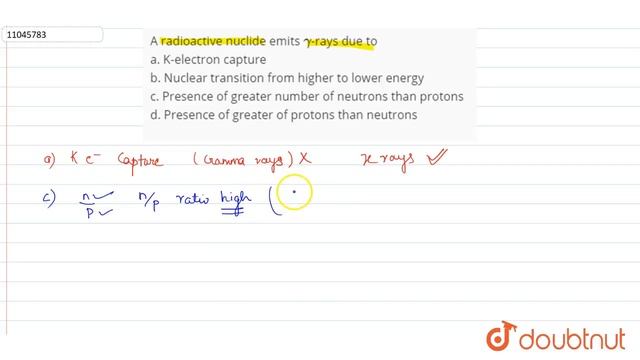 11045783
A radioactive nuclide emits γ-rays due to
a. K-electron capture
b. Nuclear transition from higher to lower energy
c. Presence of greater number of neutrons than protons
d. Presence of greater of protons than neutrons
a) K e⁻ Capture (Gamma rays) X x rays ✓
c) n✓/p✓ n/p ratio high (
doubtnut